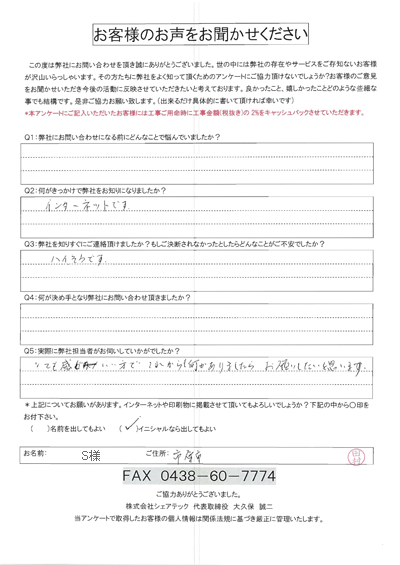 お客様のお声をお聞かせください
この度は弊社にお問い合わせを頂き誠にありがとうございました。世の中には弊社の存在やサービスをご存知ないお客様
が沢山いらっしゃいます。その方たちに弊社をよく知って頂くためのアンケートにご協力頂けないでしょうか?お客様のご意見
をお聞かせいただき今後の活動に反映させていただきたいと考えております。良かったこと、嬉しかったことどのような些細な
事でも結構です。是非ご協力お願い致します。(出来るだけ具体的に書いて頂ければ幸いです)
*本アンケートにご記入いただいたお客様には工事ご用命時に工事金額(税抜き)の2%をキャッシュバックさせていただきます。
Q1:弊社にお問い合わせになる前にどんなことで悩んでいましたか?
Q2:何がきっかけで弊社をお知りになりましたか?
インターネットです
Q3:弊社を知りすぐにご連絡頂けましたか?もしご決断されなかったとしたらどんなことがご不安でしたか?
ハイそうです
Q4:何が決め手となり弊社にお問い合わせ頂きましたか?
Q5:実際に弊社担当者がお伺いしていかがでしたか?
とても感じいい方で これからも何かありましたら お願いしたいと思います
*上記についてお願いがあります。インターネットや印刷物に掲載させて頂いてもよろしいでしょうか?下記の中から〇印を
お付下さい。
( )名前を出してもよい (✓)イニシャルなら出してもよい
お名前: S様 ご住所:
FAX 0438-60-7774
ご協力ありがとうございました。
株式会社シェアテック 代表取締役 大久保 誠二
当アンケートで取得したお客様の個人情報は関係法規に基づき厳正に管理いたします。